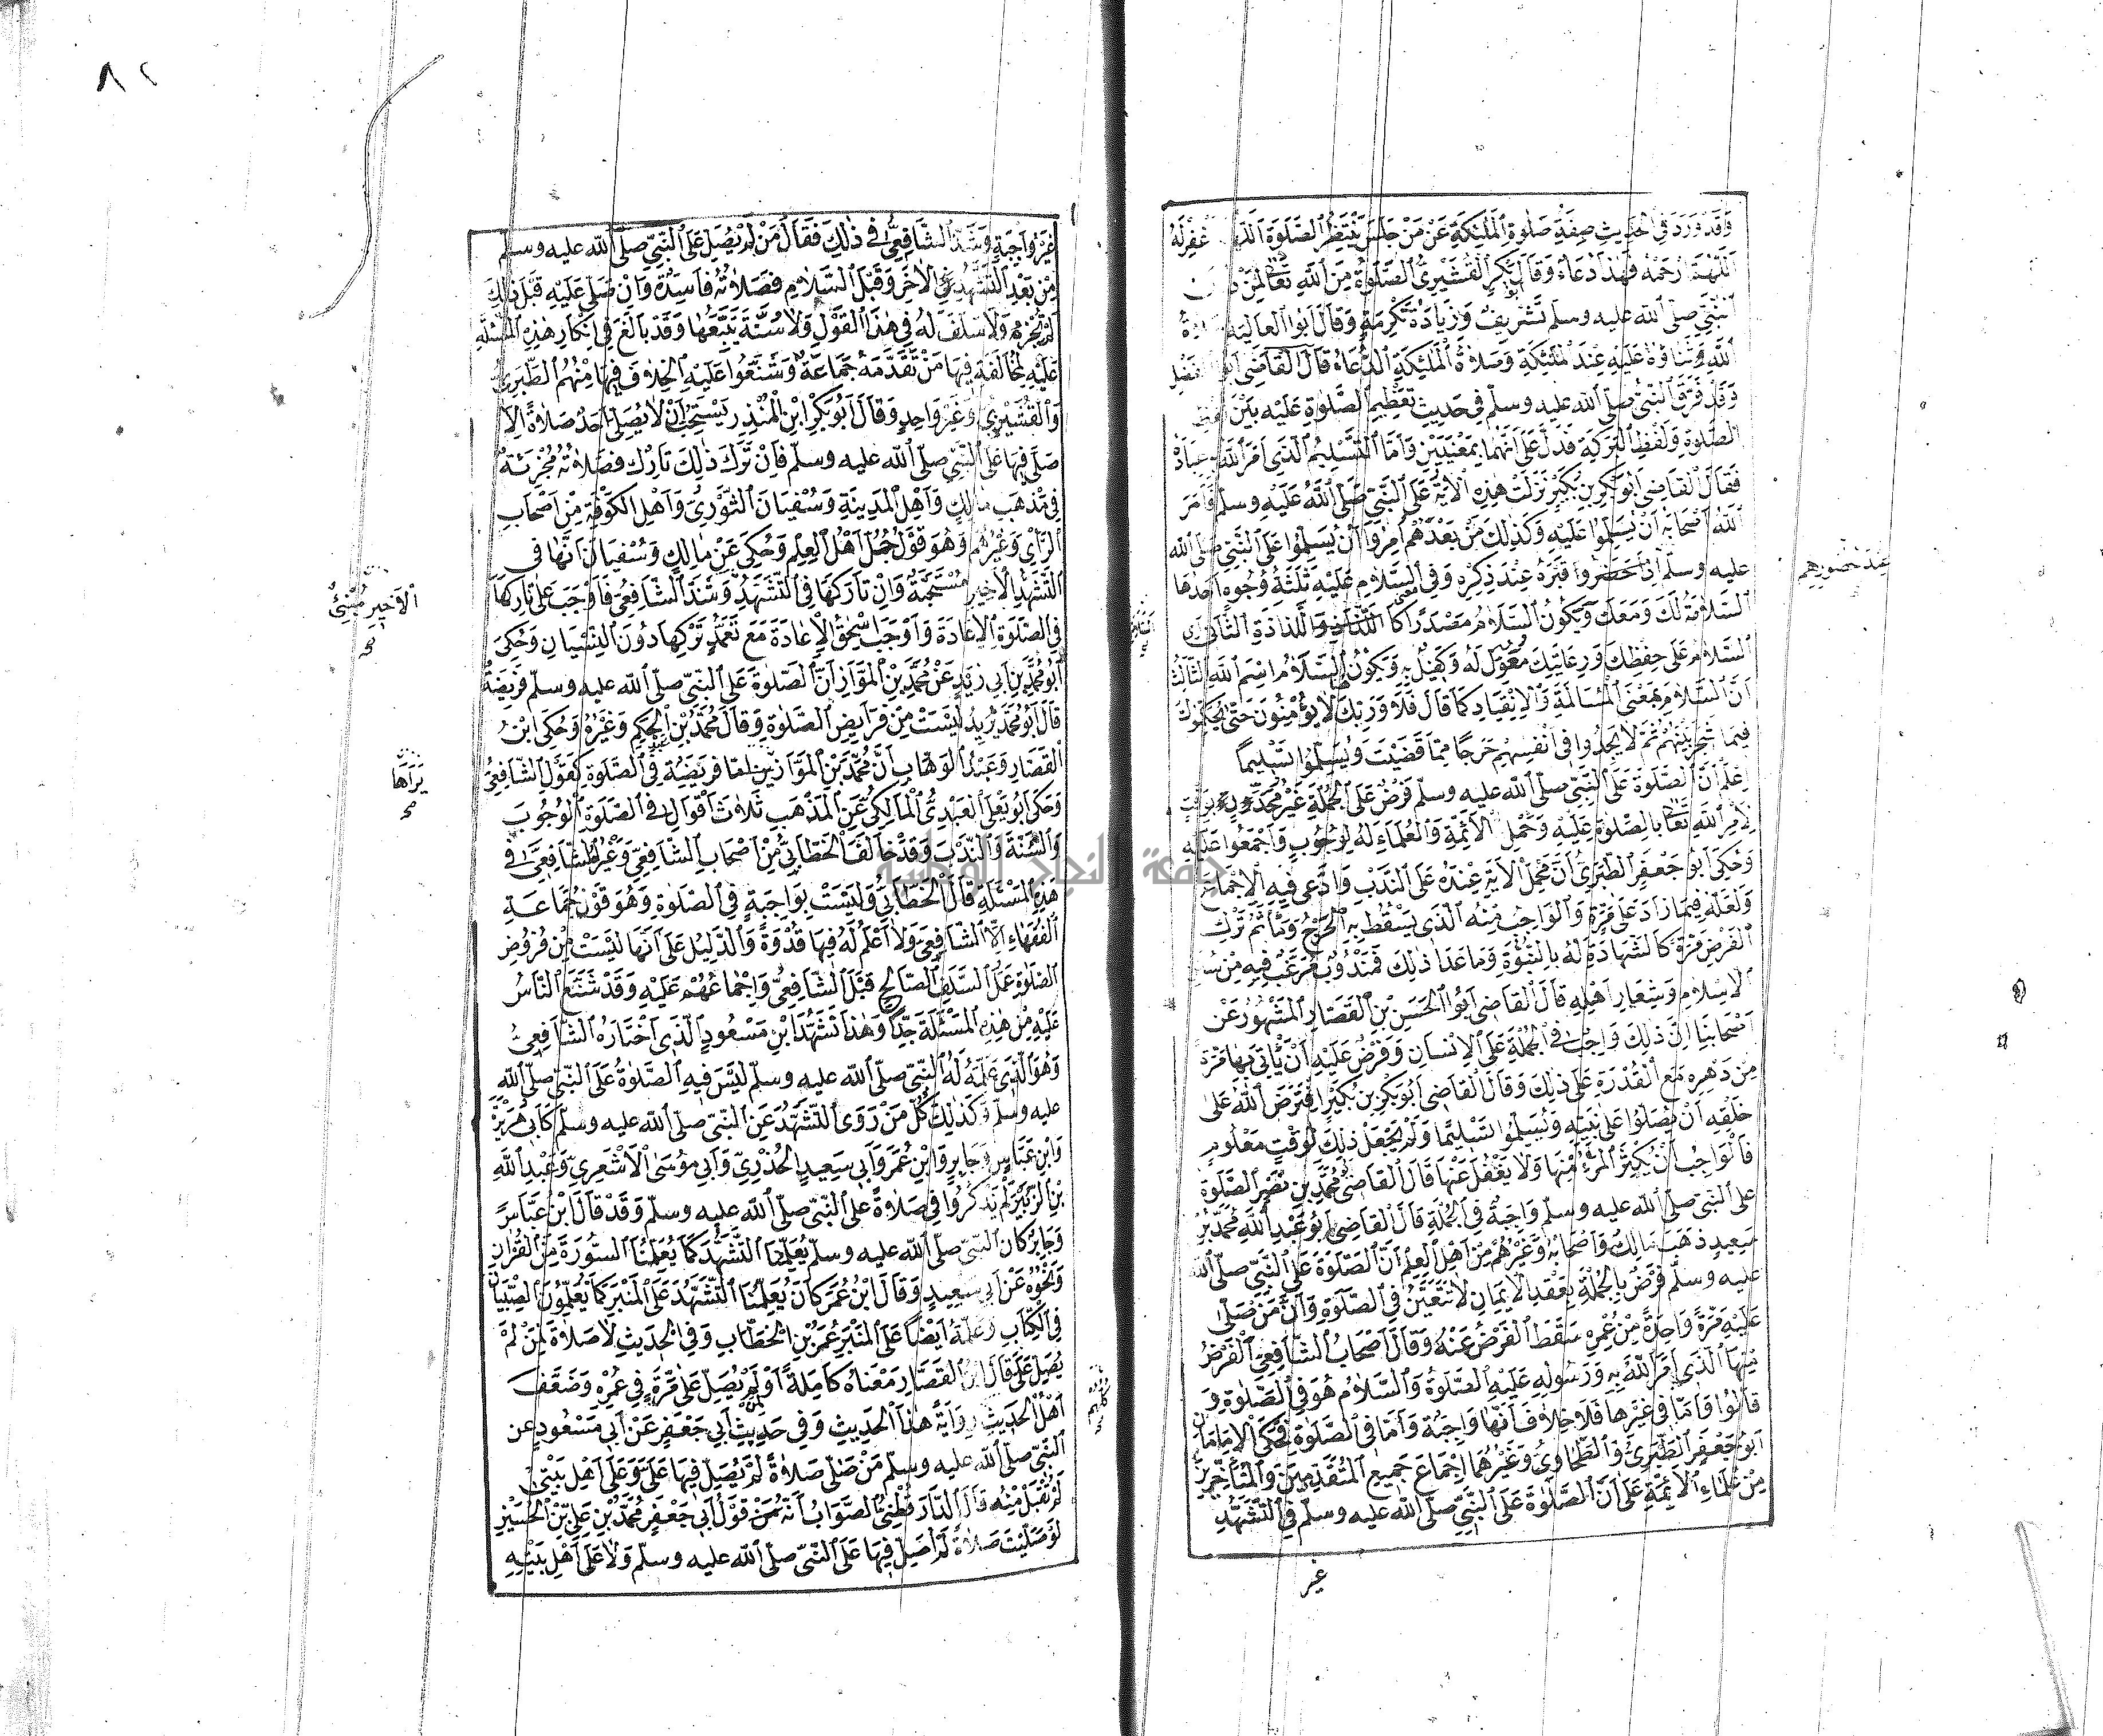 وَقَدْ وَرَدَ فِي الْحَدِيثِ صِفَةِ صَلٰوةِ الْمَلٰئِكَةِ عَنْ مَنْ جَلَسَ يَنْتَظِرُ الصَّلٰوةَ اغْفِرْلَهُ
اَللّٰهُمَّ ارْحَمْهُ فَهٰذَا دُعَاءٌ وَقَالَ بَكْرٍ الْقُشَيْرِيُّ الصَّلٰوةُ مِنَ اللّٰهِ تَعَالٰى لِمَنْ دُونَ
النَّبِيِّ صلّى الله عليه وسلم تَشْرِيفٌ وَزِيَادَةُ تَكْرِمَةٍ وَقَالَ اَبُوا الْعَالِيَةِ
اللّٰهِ ثَنَاؤُهُ عَلَيْهِ عِنْدَ الْمَلٰئِكَةِ وَصَلَاةُ الْمَلٰئِكَةِ الدُّعَاءُ قَالَ الْقَاضِي اَبُو الْفَضْلِ
وَقَدْ فَرَّقَ النَّبِيُّ صلّى الله عليه وسلّم فِي حَدِيثِ تَعْظِيمِ الصَّلٰوةِ عَلَيْهِ بَيْنَ لَفْظِ
الصَّلٰوةِ وَلَفْظِ الْبَرَكَةِ فَدَلَّ عَلٰى اَنَّهُمَا بِمَعْنَيَيْنِ وَاَمَّا التَّسْلِيمُ الَّذِي اَمَرَ اللّٰهُ بِهِ عِبَادَهُ
فَقَالَ الْقَاضِي اَبُو بَكْرِ بْنِ بُكَيْرٍ نَزَلَتْ هٰذِهِ الْاٰيَةُ عَلَى النَّبِيِّ صَلَّى اللّٰهُ عَلَيْهِ وسلم فَاَمَرَ
اللّٰهُ اَصْحَابَهُ اَنْ يُسَلِّمُوا عَلَيْهِ وَكَذٰلِكَ مَنْ بَعْدَهُمْ اُمِرُوا اَنْ يُسَلِّمُوا عَلَى النَّبِيِّ صلّى الله
عليه وسلم اِذَا حَضَرُوا قَبْرَهُ عِنْدَ ذِكْرِهِ وَفِي السَّلَامِ عَلَيْهِ ثَلٰثَةُ وُجُوهٍ اَحَدُهَا
عِنْدَ حُضُورِهِمْ
السَّلَامَةُ لَكَ وَمَعَكَ وَيَكُونُ السَّلَامُ مَصْدَرًا كَا اللَّذَاذِ وَاللَّذَاذَةِ الثَّانِي اي
السَّلَامُ عَلٰى حِفْظِكَ وَرِعَايَتِكَ مُعَوَّلٌ لَهُ وَكَفِيلٌ بِهِ وَيَكُونُ السَّلَامُ اسْمَ اللّٰهِ الثَّالِثُ
اَنَّ السَّلَامَ بِمَعْنَى الْمُسَالَمَةِ وَالْاِنْقِيَادِ كَمَا قَالَ فَلَا وَرَبِّكَ لَا يُؤْمِنُونَ حَتّٰى يُحَكِّمُوكَ
فِيمَا شَجَرَ بَيْنَهُمْ ثُمَّ لَا يَجِدُوا فِي اَنْفُسِهِمْ حَرَجًا مِمَّا قَضَيْتَ وَيُسَلِّمُوا تَسْلِيمًا
اِعْلَمْ اَنَّ الصَّلٰوةَ عَلَى النَّبِيِّ صلّى الله عليه وسلّم فَرْضٌ عَلَى الْجُمْلَةِ غَيْرُ مُحَدَّدٍ بِوَقْتٍ
لِاَمْرِ اللّٰهِ تَعَالٰى بِالصَّلٰوةِ عَلَيْهِ وَحَمْلِ الْاَئِمَّةِ وَالْعُلَمَاءِ لَهُ لِلْوُجُوبِ وَاَجْمَعُوا عَلَيْهِ
وَحَكٰى اَبُو جَعْفَرٍ الطَّبَرِيُّ اَنَّ مَحْمِلَ الْاٰيَةِ عِنْدَهُ عَلَى النَّدْبِ وَادَّعٰى فِيهِ الْاِجْمَاعَ
وَلَعَلَّهُ فِيمَا زَادَ عَلٰى مَرَّةٍ وَالْوَاجِبُ مِنْهُ الَّذِي يَسْقُطُ بِهِ الْحَرَجُ وَمَأْثَمُ تَرْكِ
الْفَرْضِ مَرَّةً كَالشَّهَادَةِ لَهُ بِالنُّبُوَّةِ وَمَا عَدَا ذٰلِكَ فَمَنْدُوبٌ مُرَغَّبٌ فِيهِ مِنْ سُنَنِ
الْاِسْلَامِ وَشِعَارِ اَهْلِهِ قَالَ الْقَاضِي اَبُوا الْحَسَنِ بْنِ الْقَصَّارِ الْمَشْهُورُ عَنْ
اَصْحَابِنَا اِنَّ ذٰلِكَ وَاجِبٌ فِي الْجُمْلَةِ عَلَى الْاِنْسَانِ وَفَرْضٌ عَلَيْهِ اَنْ يَأْتِيَ بِهَا مَرَّةً
مِنْ دَهْرِهِ مَعَ الْقُدْرَةِ عَلٰى ذٰلِكَ وَقَالَ الْقَاضِي اَبُو بَكْرِ بْنِ بُكَيْرٍ افْتَرَضَ اللّٰهُ عَلٰى
خَلْقِهِ اَنْ يُصَلُّوا عَلٰى نَبِيِّهِ وَيُسَلِّمُوا تَسْلِيمًا وَلَمْ يَجْعَلْ ذٰلِكَ لِوَقْتٍ مَعْلُومٍ
فَالْوَاجِبُ اَنْ يُكْثِرَ الْمَرْءُ مِنْهَا وَلَا يَغْفُلَ عَنْهَا قَالَ الْقَاضِي مُحَمَّدِ بْنِ نَصْرٍ الصَّلٰوةُ
على النبي صلّى الله عليه وسلّم وَاجِبَةٌ فِي الْجُمْلَةِ قَالَ الْقَاضِي اَبُو عَبْدِ اللّٰهِ مُحَمَّدُ بْنُ
سَعِيدٍ ذَهَبَ مَالِكٌ وَاَصْحَابُهُ وَغَيْرُهُمْ مِنْ اَهْلِ الْعِلْمِ اَنَّ الصَّلٰوةَ عَلَى النَّبِيِّ صلّى الله
عليه وسلّم فَرْضٌ بِالْجُمْلَةِ بِعَقْدِ الْاِيمَانِ لَا تَتَعَيَّنُ فِي الصَّلٰوةِ وَاَنَّ مَنْ صَلّٰى
عَلَيْهِ مَرَّةً وَاحِدَةً مِنْ عُمْرِهِ سَقَطَ الْفَرْضُ عَنْهُ وَقَالَ اَصْحَابُ الشَّافِعِيِّ الْفَرْضُ
مِنْهَا الَّذِي اَمَرَ اللّٰهُ بِهِ وَرَسُولُهُ عَلَيْهِ الصَّلٰوةُ وَالسَّلَامُ هُوَ فِي الصَّلٰوةِ وَ
قَالُوا وَاَمَّا فِي غَيْرِهَا فَلَا خِلَافَ اَنَّهَا وَاجِبَةٌ وَاَمَّا فِي الصَّلٰوةِ فَحَكَى الْاِمَامَانِ
اَبُو جَعْفَرٍ الطَّبَرِيُّ وَالطَّحَاوِيُّ وَغَيْرُهُمَا اِجْمَاعَ جَمِيعِ الْمُتَقَدِّمِينَ وَالْمُتَأَخِّرِينَ
مِنْ عُلَمَاءِ الْاَئِمَّةِ عَلٰى اَنَّ الصَّلٰوةَ عَلَى النَّبِيِّ صلّى الله عليه وسلّم فِي التَّشَهُّدِ
غير
٨٢
غَيْرُ وَاجِبَةٍ وَشَذَّ الشَّافِعِيُّ فِي ذٰلِكَ فَقَالَ مَنْ لَمْ يُصَلِّ عَلَى النَّبِيِّ صلّى الله عليه وسلم
مِنْ بَعْدِ التَّشَهُّدِ الْاٰخِرِ وَقَبْلَ السَّلَامِ فَصَلَاتُهُ فَاسِدَةٌ وَاِنْ صَلّٰى عَلَيْهِ قَبْلَ ذٰلِكَ
لَمْ تُجْزِهِ وَلَا سَلَفَ لَهُ فِي هٰذَا الْقَوْلِ وَلَا سُنَّةَ يَتَّبِعُهَا وَقَدْ بَالَغَ فِي اِنْكَارِ هٰذِهِ الْمَسْئَلَةِ
عَلَيْهِ لِمُخَالَفَتِهِ فِيهَا مَنْ تَقَدَّمَهُ جَمَاعَةٌ وَشَنَّعُوا عَلَيْهِ الْخِلَافَ فِيهَا مِنْهُمُ الطَّبَرِيُّ
وَالْقُشَيْرِيُّ وَغَيْرُ وَاحِدٍ وَقَالَ اَبُو بَكْرِ ابْنِ الْمُنْذِرِ يَسْتَحِبُّ اَنْ لَا يُصَلِّيَ اَحَدٌ صَلَاةً اِلَّا
صَلّٰى فِيهَا عَلَى النَّبِيِّ صلّى الله عليه وسلّم فَاِنْ تَرَكَ ذٰلِكَ تَارِكٌ فَصَلَاتُهُ مُجْزِئَةٌ
فِي مَذْهَبِ مَالِكٍ وَاَهْلِ الْمَدِينَةِ وَسُفْيَانَ الثَّوْرِيِّ وَاَهْلِ الْكُوفَةِ مِنْ اَصْحَابِ
الرَّأْيِ وَغَيْرِهِمْ وَهُوَ قَوْلُ جُلِّ اَهْلِ الْعِلْمِ وَحُكِيَ عَنْ مَالِكٍ وَسُفْيَانَ اَنَّهَا فِي
التَّشَهُّدِ الْاَخِيرِ مُسْتَحَبَّةٌ وَاِنْ تَارِكَهَا فِي التَّشَهُّدِ وَشَذَّ الشَّافِعِيُّ فَاَوْجَبَ عَلٰى تَارِكِهَا
الْاَخِيرِ مُسِيءٌ
فِي الصَّلٰوةِ الْاِعَادَةَ وَاَوْجَبَ اِسْحٰقُ الْاِعَادَةَ مَعَ تَعَمُّدِ تَرْكِهَا دُونَ النِّسْيَانِ وَحَكٰى
اَبُو مُحَمَّدِ بْنِ اَبِي زَيْدٍ عَنْ مُحَمَّدِ بْنِ الْمَوَّازِ اَنَّ الصَّلٰوةَ عَلَى النَّبِيِّ صلّى الله عليه وسلّم فَرِيضَةٌ
قَالَ اَبُو مُحَمَّدٍ يُرِيدُ لَيْسَتْ مِنْ فَرَايِضِ الصَّلٰوةِ وَقَالَ مُحَمَّدُ بْنِ عَبْدِ الْحَكَمِ وَغَيْرُهُ وَحَكَى ابْنُ
الْقَصَّارِ وَعَبْدُ الْوَهَّابِ اَنَّ مُحَمَّدَ بْنَ الْمَوَّازِ فَرِيضَةً فِي الصَّلٰوةِ كَقَوْلِ الشَّافِعِيِّ
يَرَاهَا
وَحَكٰى اَبُو يَعْلَى الْعَبْدِيُّ الْمَالِكِيُّ عَنِ الْمَذْهَبِ ثَلَاثَ اَقْوَالٍ فِي الصَّلٰوةِ الْوُجُوبَ
وَالسُّنَّةَ وَالنَّدْبَ وَقَدْ خَالَفَ الْخَطَّابِيُّ مِنْ اَصْحَابِ الشَّافِعِيِّ وَغَيْرُهُ الشَّافِعِيَّ فِي
هٰذِهِ الْمَسْئَلَةِ قَالَ الْخَطَّابِيُّ وَلَيْسَتْ بِوَاجِبَةٍ فِي الصَّلٰوةِ وَهُوَ قَوْلُ جَمَاعَةِ
الْفُقَهَاءِ اِلَّا الشَّافِعِيَّ وَلَا اَعْلَمُ لَهُ فِيهَا قُدْوَةً وَالدَّلِيلُ عَلٰى اَنَّهَا لَيْسَتْ مِنْ فُرُوضِ
الصَّلٰوةِ عَمَلُ السَّلَفِ الصَّالِحِ قَبْلَ الشَّافِعِيِّ وَاِجْمَاعُهُمْ عَلَيْهِ وَقَدْ شَنَّعَ النَّاسُ
عَلَيْهِ مِنْ هٰذِهِ الْمَسْئَلَةِ جِدًّا وَهٰذَا تَشَهُّدُ ابْنِ مَسْعُودٍ الَّذِي اخْتَارَهُ الشَّافِعِيُّ
وَهُوَ الَّذِي عَلَّمَهُ لَهُ النَّبِيُّ صلّى الله عليه وسلّم لَيْسَ فِيهِ الصَّلٰوةُ عَلَى النَّبِيِّ صلّى الله
عليه وسلّم وَكَذٰلِكَ كُلُّ مَنْ رَوَى التَّشَهُّدَ عَنِ النَّبِيِّ صلّى الله عليه وسلّم كَاَبِي هُرَيْرَةَ
وَابْنِ عَبَّاسٍ وَجَابِرٍ وَابْنِ عُمَرَ وَاَبِي سَعِيدٍ الْخُدْرِيِّ وَاَبِي مُوسَى الْاَشْعَرِيِّ وَعَبْدِ اللّٰهِ
بْنِ الزُّبَيْرِ لَمْ يَذْكُرُوا فِي صَلَاةً عَلَى النَّبِيِّ صلّى الله عليه وسلّم وَقَدْ قَالَ ابْنُ عَبَّاسٍ
وَجَابِرٌ كَانَ النَّبِيُّ صلّى الله عليه وسلّم يُعَلِّمُنَا التَّشَهُّدَ كَمَا يُعَلِّمُنَا السُّورَةَ مِنَ الْقُرْاٰنِ
وَنَحْوُهُ عَنْ اَبِي سَعِيدٍ وَقَالَ ابْنُ عُمَرَ كَانَ يُعَلِّمُنَا التَّشَهُّدَ عَلَى الْمِنْبَرِ كَمَا يُعَلِّمُونَ الصِّبْيَانَ
فِي الْكِتَابِ وَعَلَّمَهُ اَيْضًا عَلَى الْمِنْبَرِ عُمَرُ بْنِ الْخَطَّابِ وَفِي الْحَدِيثِ لَا صَلَاةَ لِمَنْ لَمْ
يُصَلِّ عَلَيَّ قَالَ ابْنُ الْقَصَّارِ مَعْنَاهُ كَامِلَةً اَوْ لِمَنْ لَمْ يُصَلِّ عَلَيَّ مَرَّةً فِي عُمْرِهِ وَضَعَّفَ
اَهْلُ الْحَدِيثِ رِوَايَةَ هٰذَا الْحَدِيثِ وَفِي حَدِيثِ اَبِي جَعْفَرٍ عَنْ اَبِي مَسْعُودٍ عن
النَّبِيِّ صلّى الله عليه وسلّم مَنْ صَلّٰى صَلَاةً لَمْ يُصَلِّ فِيهَا عَلَيَّ وَعَلٰى اَهْلِ بَيْتِي
لَمْ تُقْبَلْ مِنْهُ قَالَ الدَّارَ قُطْنِيُّ الصَّوَابُ اَنَّهُ مِنْ قَوْلِ اَبِي جَعْفَرٍ مُحَمَّدُ بْنِ عَلِيِّ بْنِ الْحُسَيْنِ
لَوْ صَلَّيْتَ صَلَاةً لَمْ اُصَلِّ فِيهَا عَلَى النَّبِيِّ صلّى الله عليه وسلّم وَلَا عَلٰى اَهْلِ بَيْتِهِ
جامعة النجاح الوطنية